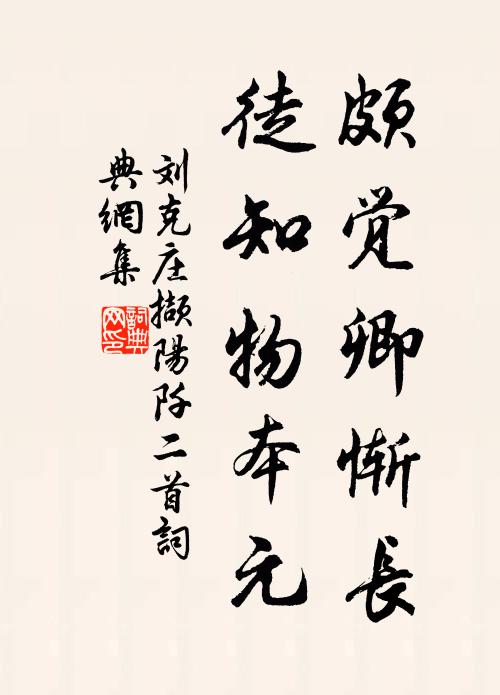 颇觉卿惭長
徒知物本元
刘克庄撷陽阡二首詞
典網集
詞典网印